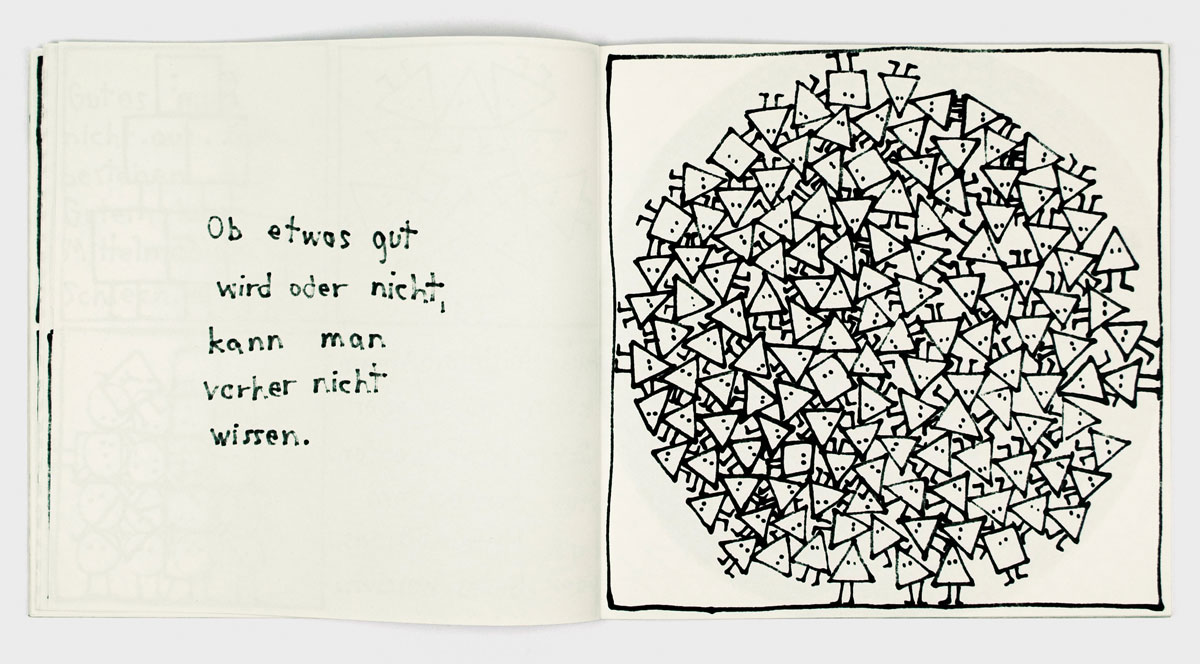 Ob etwas gut
wird oder nicht,
kann man
vorher nicht
wissen.